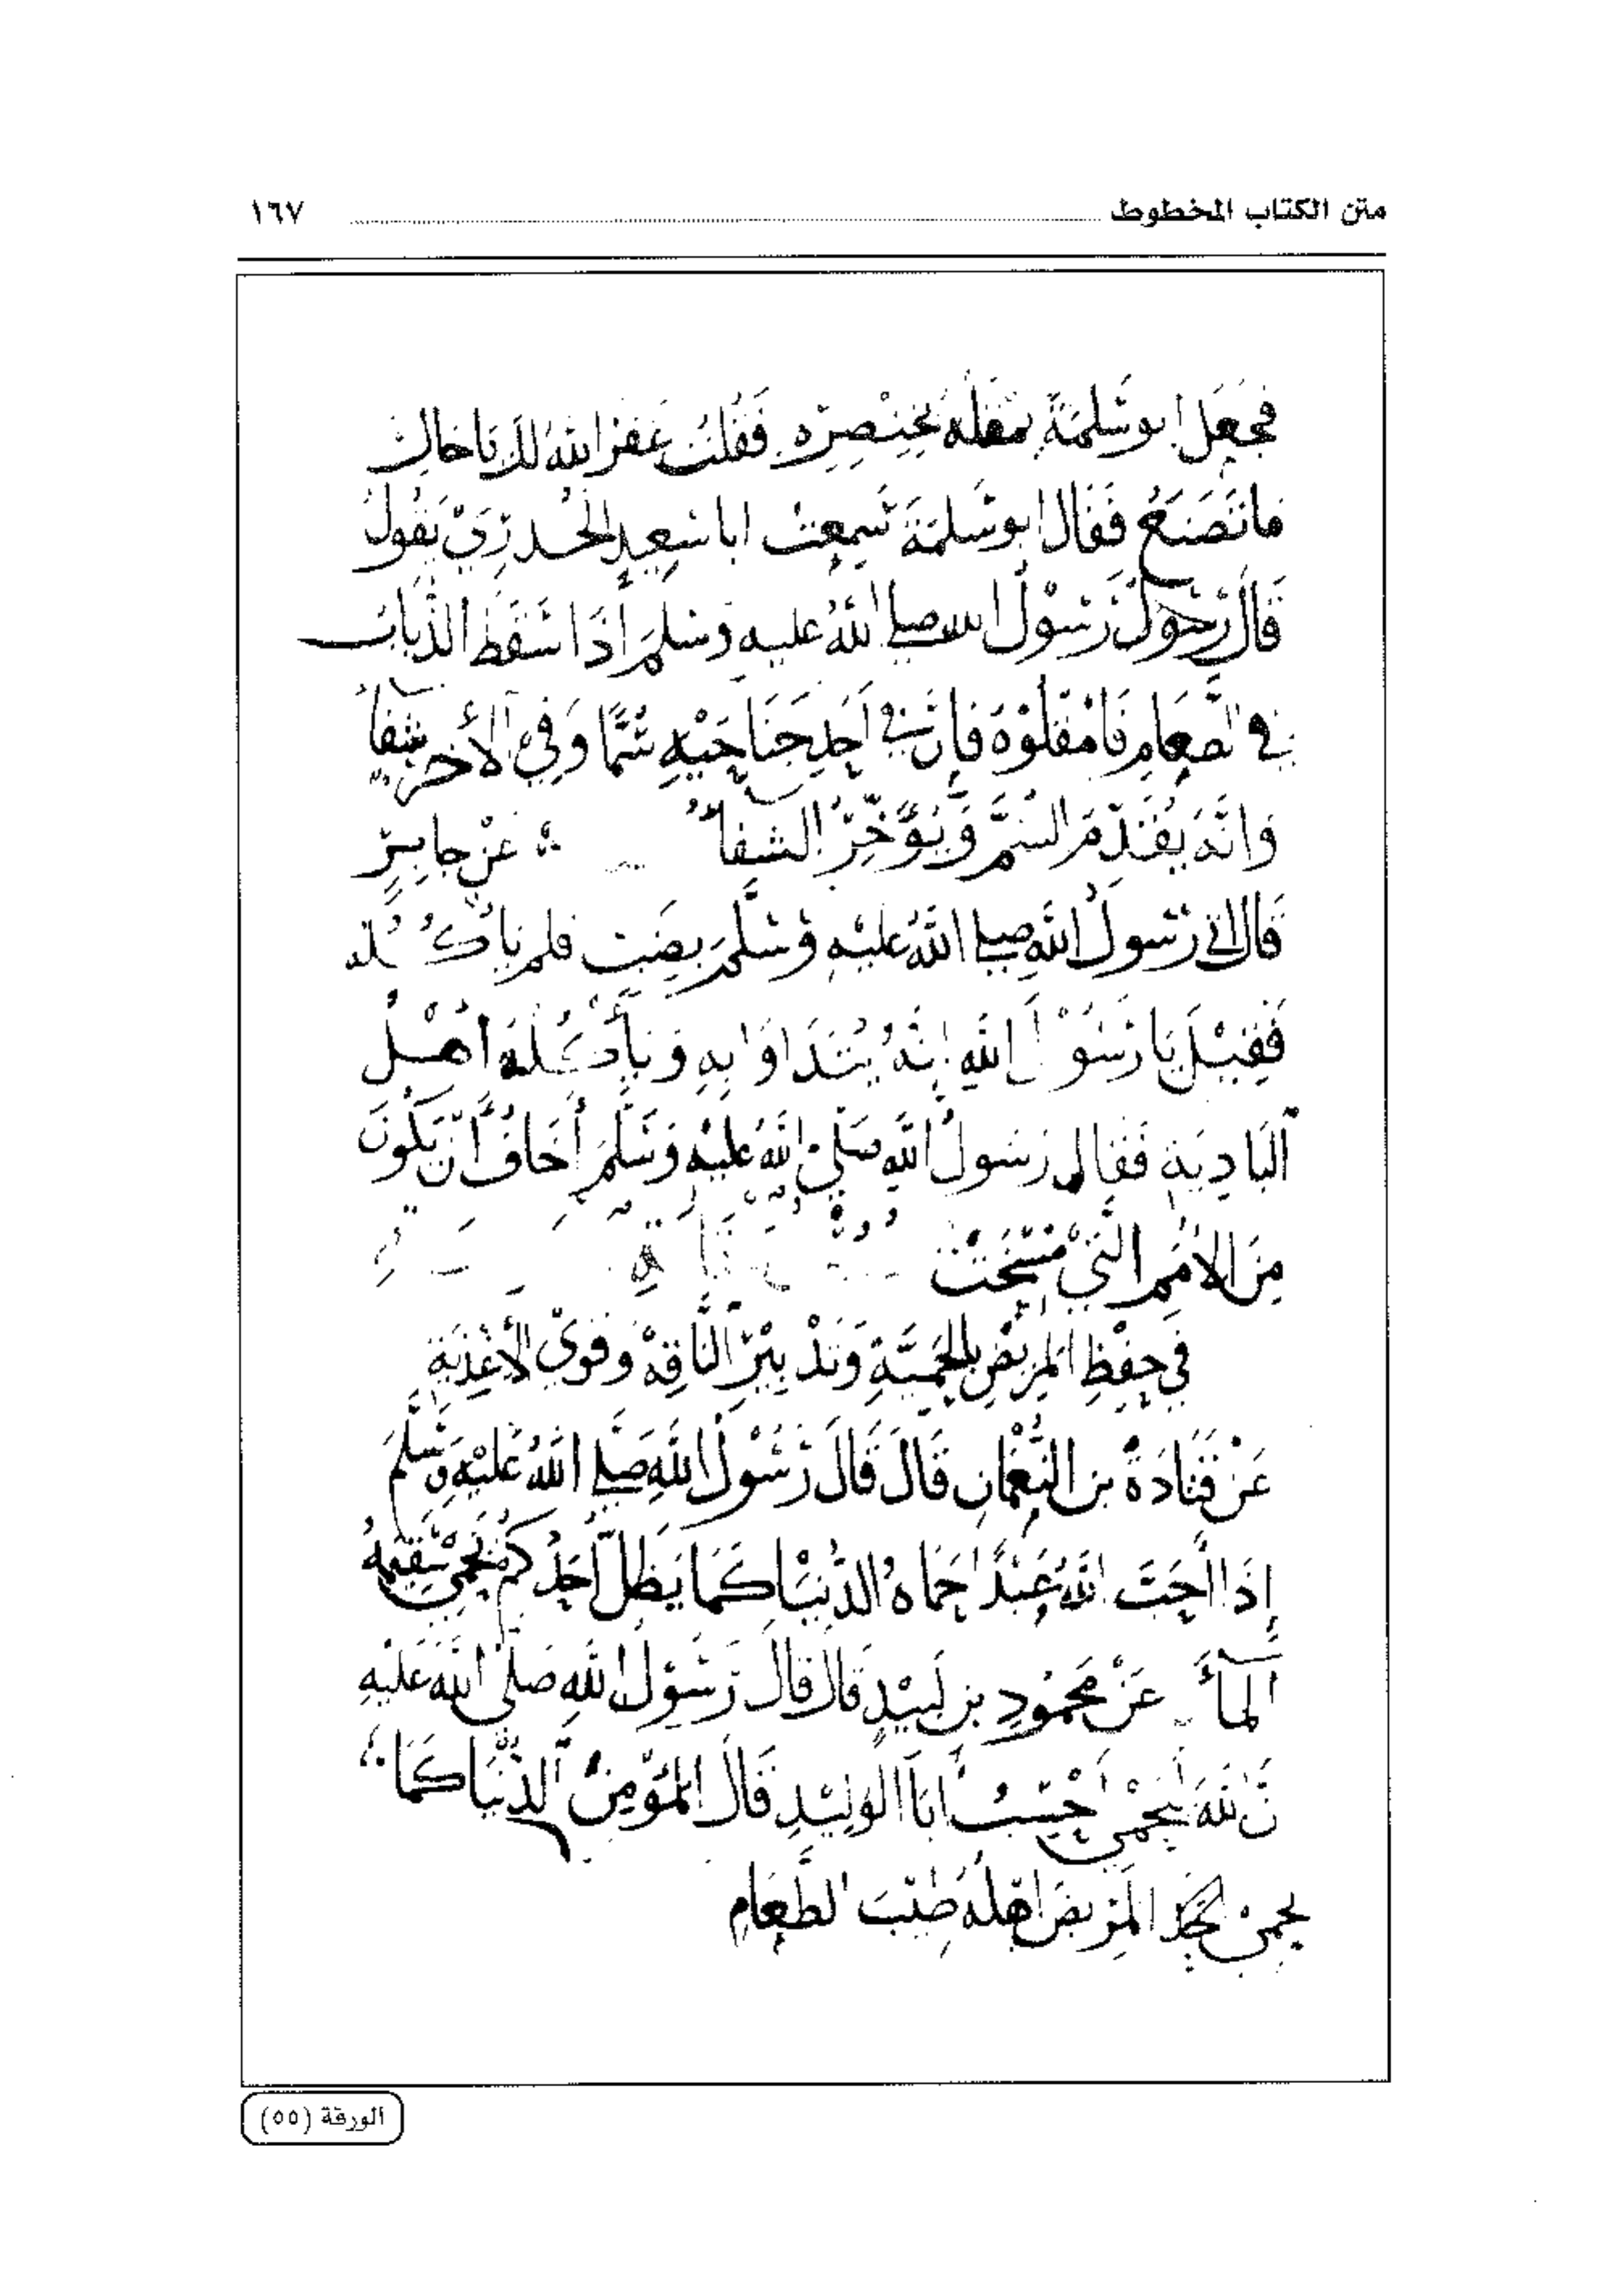 متن الكتاب المخطوط ١٦٧
فجعل ابو سَلمَة يمقله بخِنْصِرِه فَقُلت غَفَرَ اللهُ لك يا خال
مَا تَصْنَعُ فَقَال ابو سَلمَةَ سَمِعت ابا سَعِيدٍ الخُدرِيَّ يَقُولُ
قَالَ رَسُولُ الله صلى اللهُ عليه وَسَلم إذَا سَقَطَ الذُّبابُ
فى الطَّعَامِ فَامْقُلُوْهُ فَإن في أَحَدِ جَنَاحَيْهِ سُمًّا وَفِي الآخر شِفَآءً
وَانَّهُ يُقَدِّمُ السُّمَّ وَيُؤَخِّرُ الشفآءَ عَنْ جَابِرٍ
قَالَ اتى رَسُولُ اللهِ صلى اللَّهُ عَلَيْهِ وَسَلَّمَ بِضَبٍّ فلم يَأْكُلْه
فَقِيْلَ يَا رَسُوْلَ اللهِ إنَّهُ يُتَدَاوَا بِهِ وَيَأْكُلُهُ اهْلُ
البَادِيَةِ فَقَال رَسُولُ اللَّهِ صَلَّى اللهُ عَلَيْهِ وَسَلَّمَ أَخَافُ أَنْ يَكُونَ
مِنَ الأُمَمِ الَّتِيْ مُسِخَتْ
فِي حِفْظِ المَرِيْضِ بِالحِمْيَةِ وَتَدْبِيْرِ النَّاقِهْ وَقوى الأَغْذِيَةِ
عَنْ قَتَادَةَ بن النُّعْمَانِ قَالَ قَالَ رَسُوْلُ اللَّهِ صَلى اللَّهُ عَلَيْهِ وَسَلَّمَ
إذَا أَحَبَّ اللهُ عَبْدًا حَمَاهُ الدُّنْيَا كَمَا يَظَلُّ أَحَدُكُمْ يَحْمِي سَقِيْمَهُ
المآءَ عَنْ مَحْمُودِ بن لَبِيْدٍ قَالَ قَالَ رَسُوْلُ اللهِ صَلَّى اللهُ عَلَيْهِ
نَّ اللَّهَ يَحْمِي احْسِبُ أَبَا الوَلِيْدِ قَالَ المُؤْمِنَ الدُّنْيَا كَمَا
يحمي المَرِيضَ اهْلُهُ الطَّعَامِ
الورقة (٥٥)